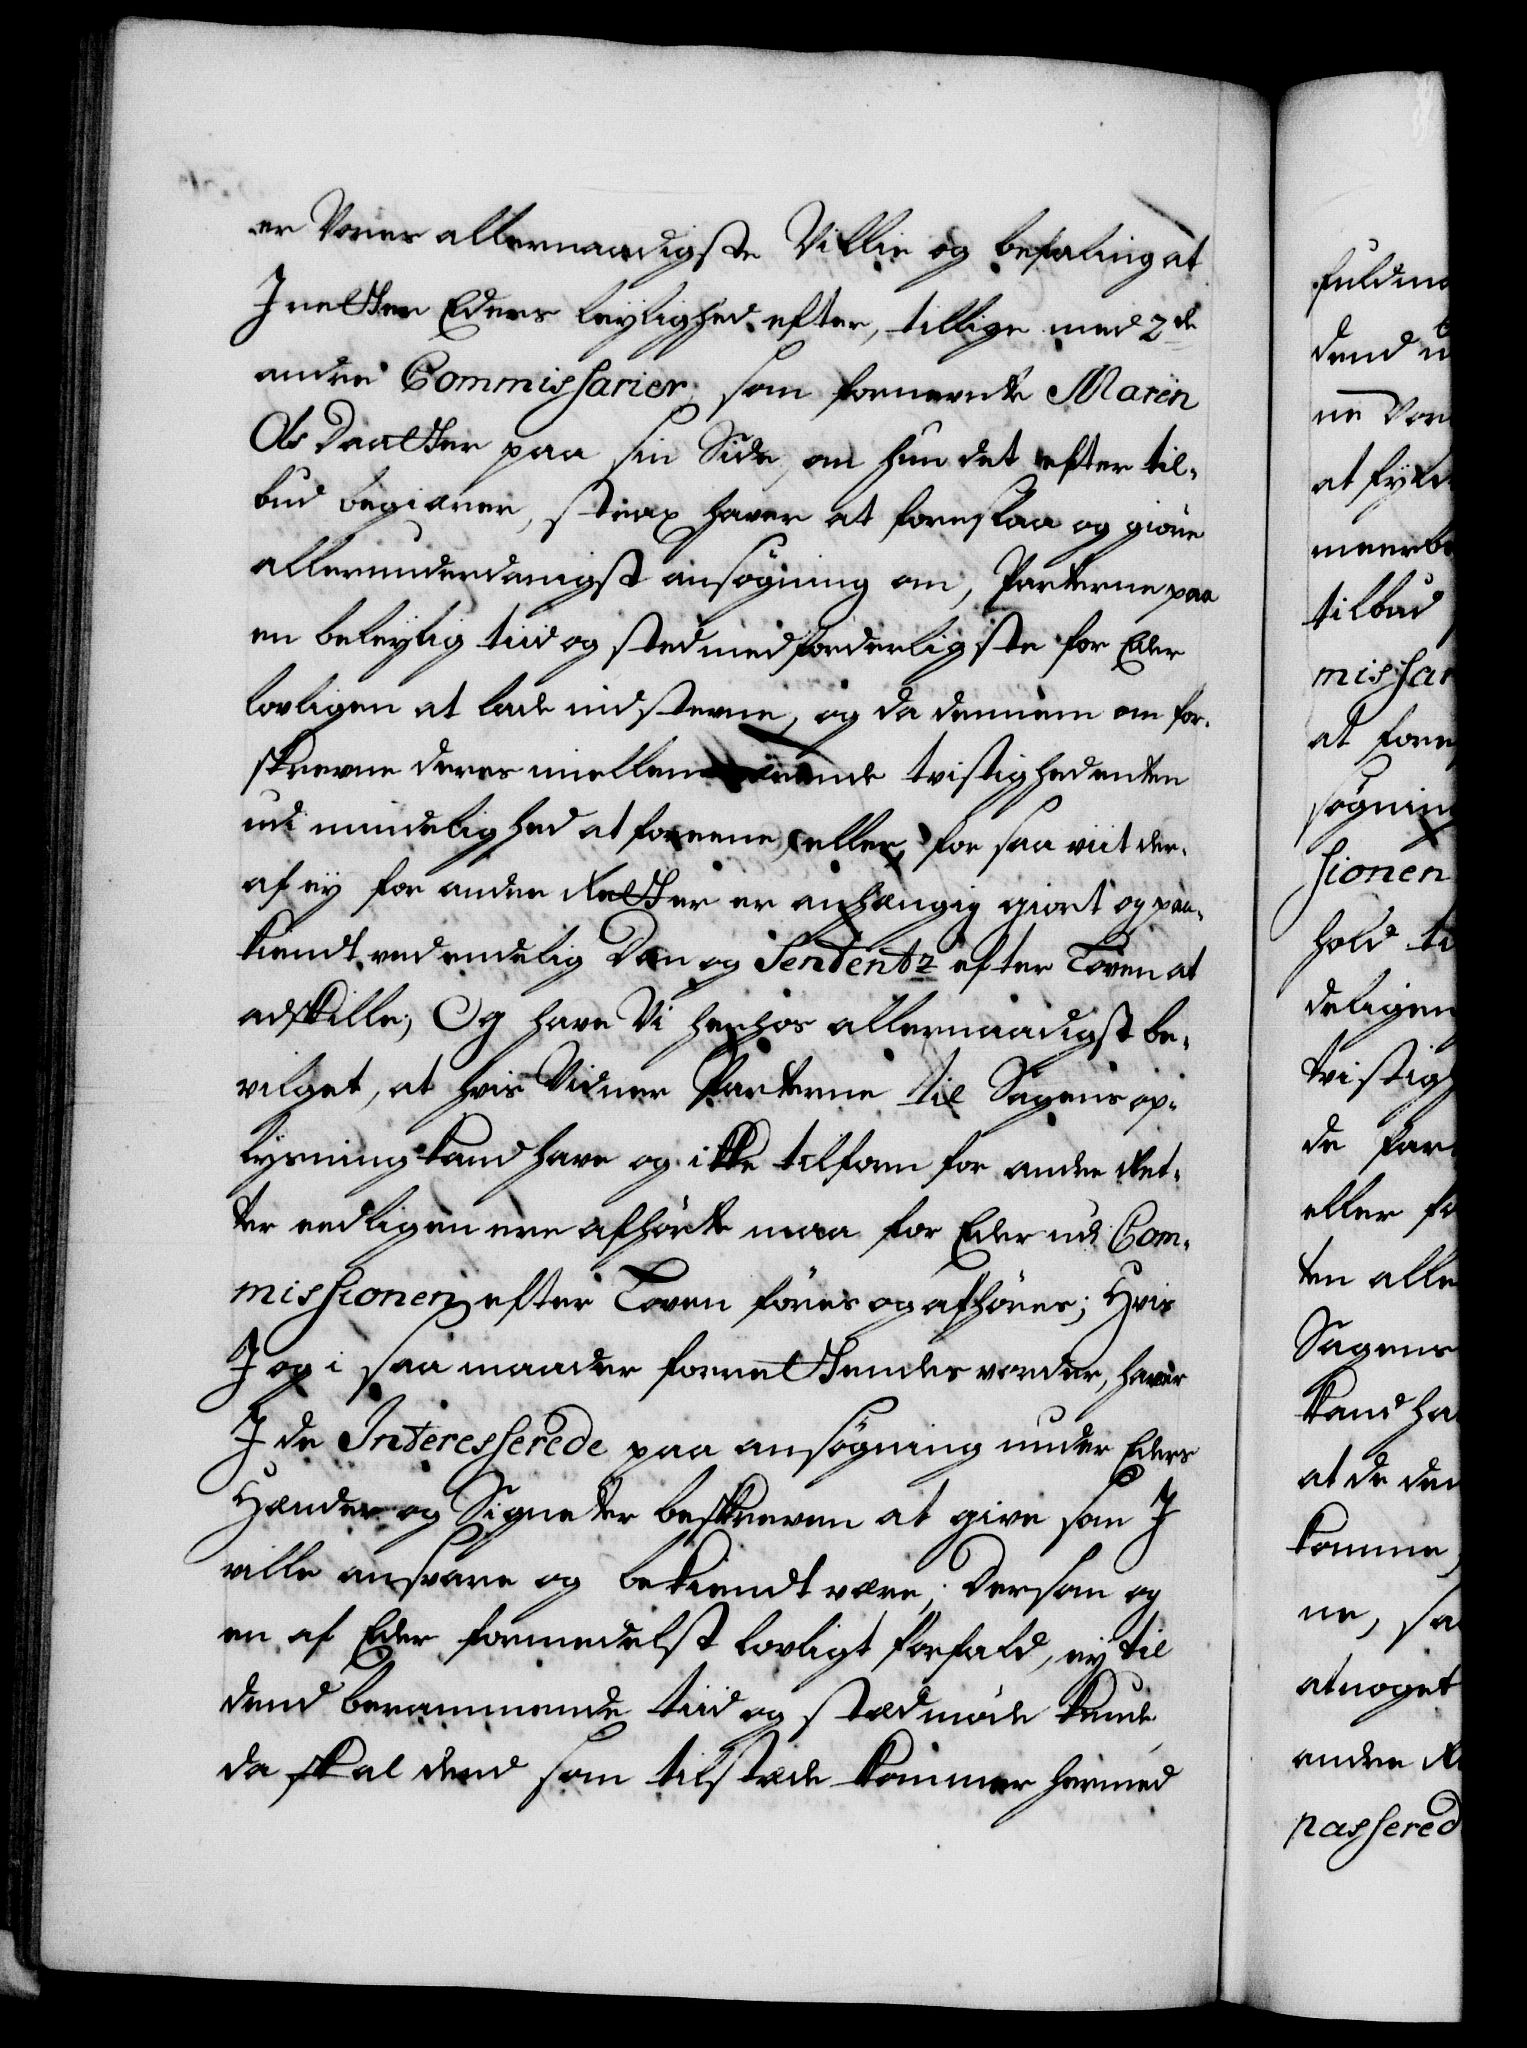 er Vores allernaadigste Villie og befaling at
I retter Eders leylighed efter, tillige med 2de
andre Commissarier, som fornevnte Maren
Ols Daatter paa sin Side, om hun det efter til-
bud begierer, strax haver at foreslaa og giøre
allerunderdanigst ansøgning om, Parterne paa
en beleylig tiid og sted med forderligste for Eder
lovligen at lade indstevne, og da dennem om for-
skrevne deres imellem værende tvistigheder enten
udi mindelighed at foreene, eller, for saa viit der-
af ey for andre Retter er anhængig giort og paa-
kiendt, ved endelig Dom og Sententz efter Loven at
adskille; Og have Vi herhos allernaadigst be-
vilget, at hvis Vidner Parterne til Sagens op-
lysning kand have og ikke tilforn for andre Ret-
ter eedligen ere afhørte maa for Eder udi Com-
missionen efter Loven føres og afhøres; Hvis
I og i saa maader forrettendes vorder, haver
I de Interesserede paa ansøgning under Eders
Hænder og Signeter beskreven at give som I
ville ansvare og bekiendt være; Dersom og
en af Eder formedelst lovligt forfald, ey til
dend berammende tiid og sted møde kunde,
da skal dend som tilstæde kommer hermed
fuldm
dend u
ne Vor
at fyld
meerbe
tilbud
missar
at fore
søgnin
sionen
hold ti
deligen
tvistigh
de for
eller fo
ten alle
Sagens
kand ha
at de den
komme
ne, sa
at noget
andre Re
passered